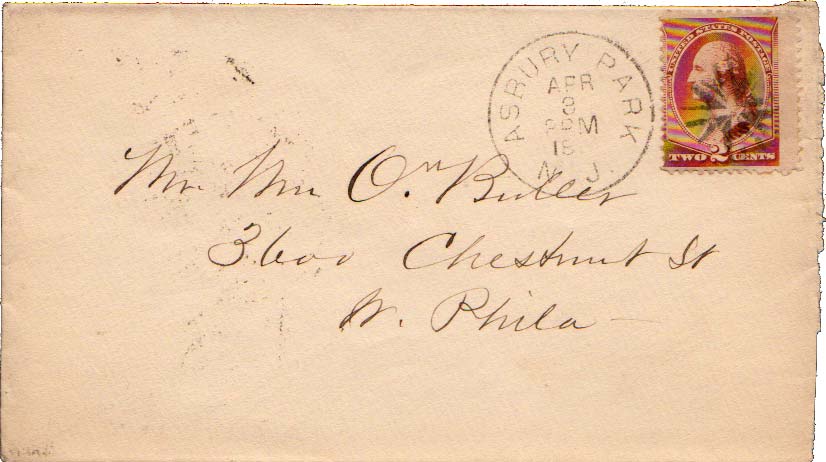 ASBURY PARK
APR
8
PM
18
N.J.
UNITED STATES POSTAGE
TWO 2 CENTS
Mr. Wm O. Butler
3600 Chestnut St
W. Phila